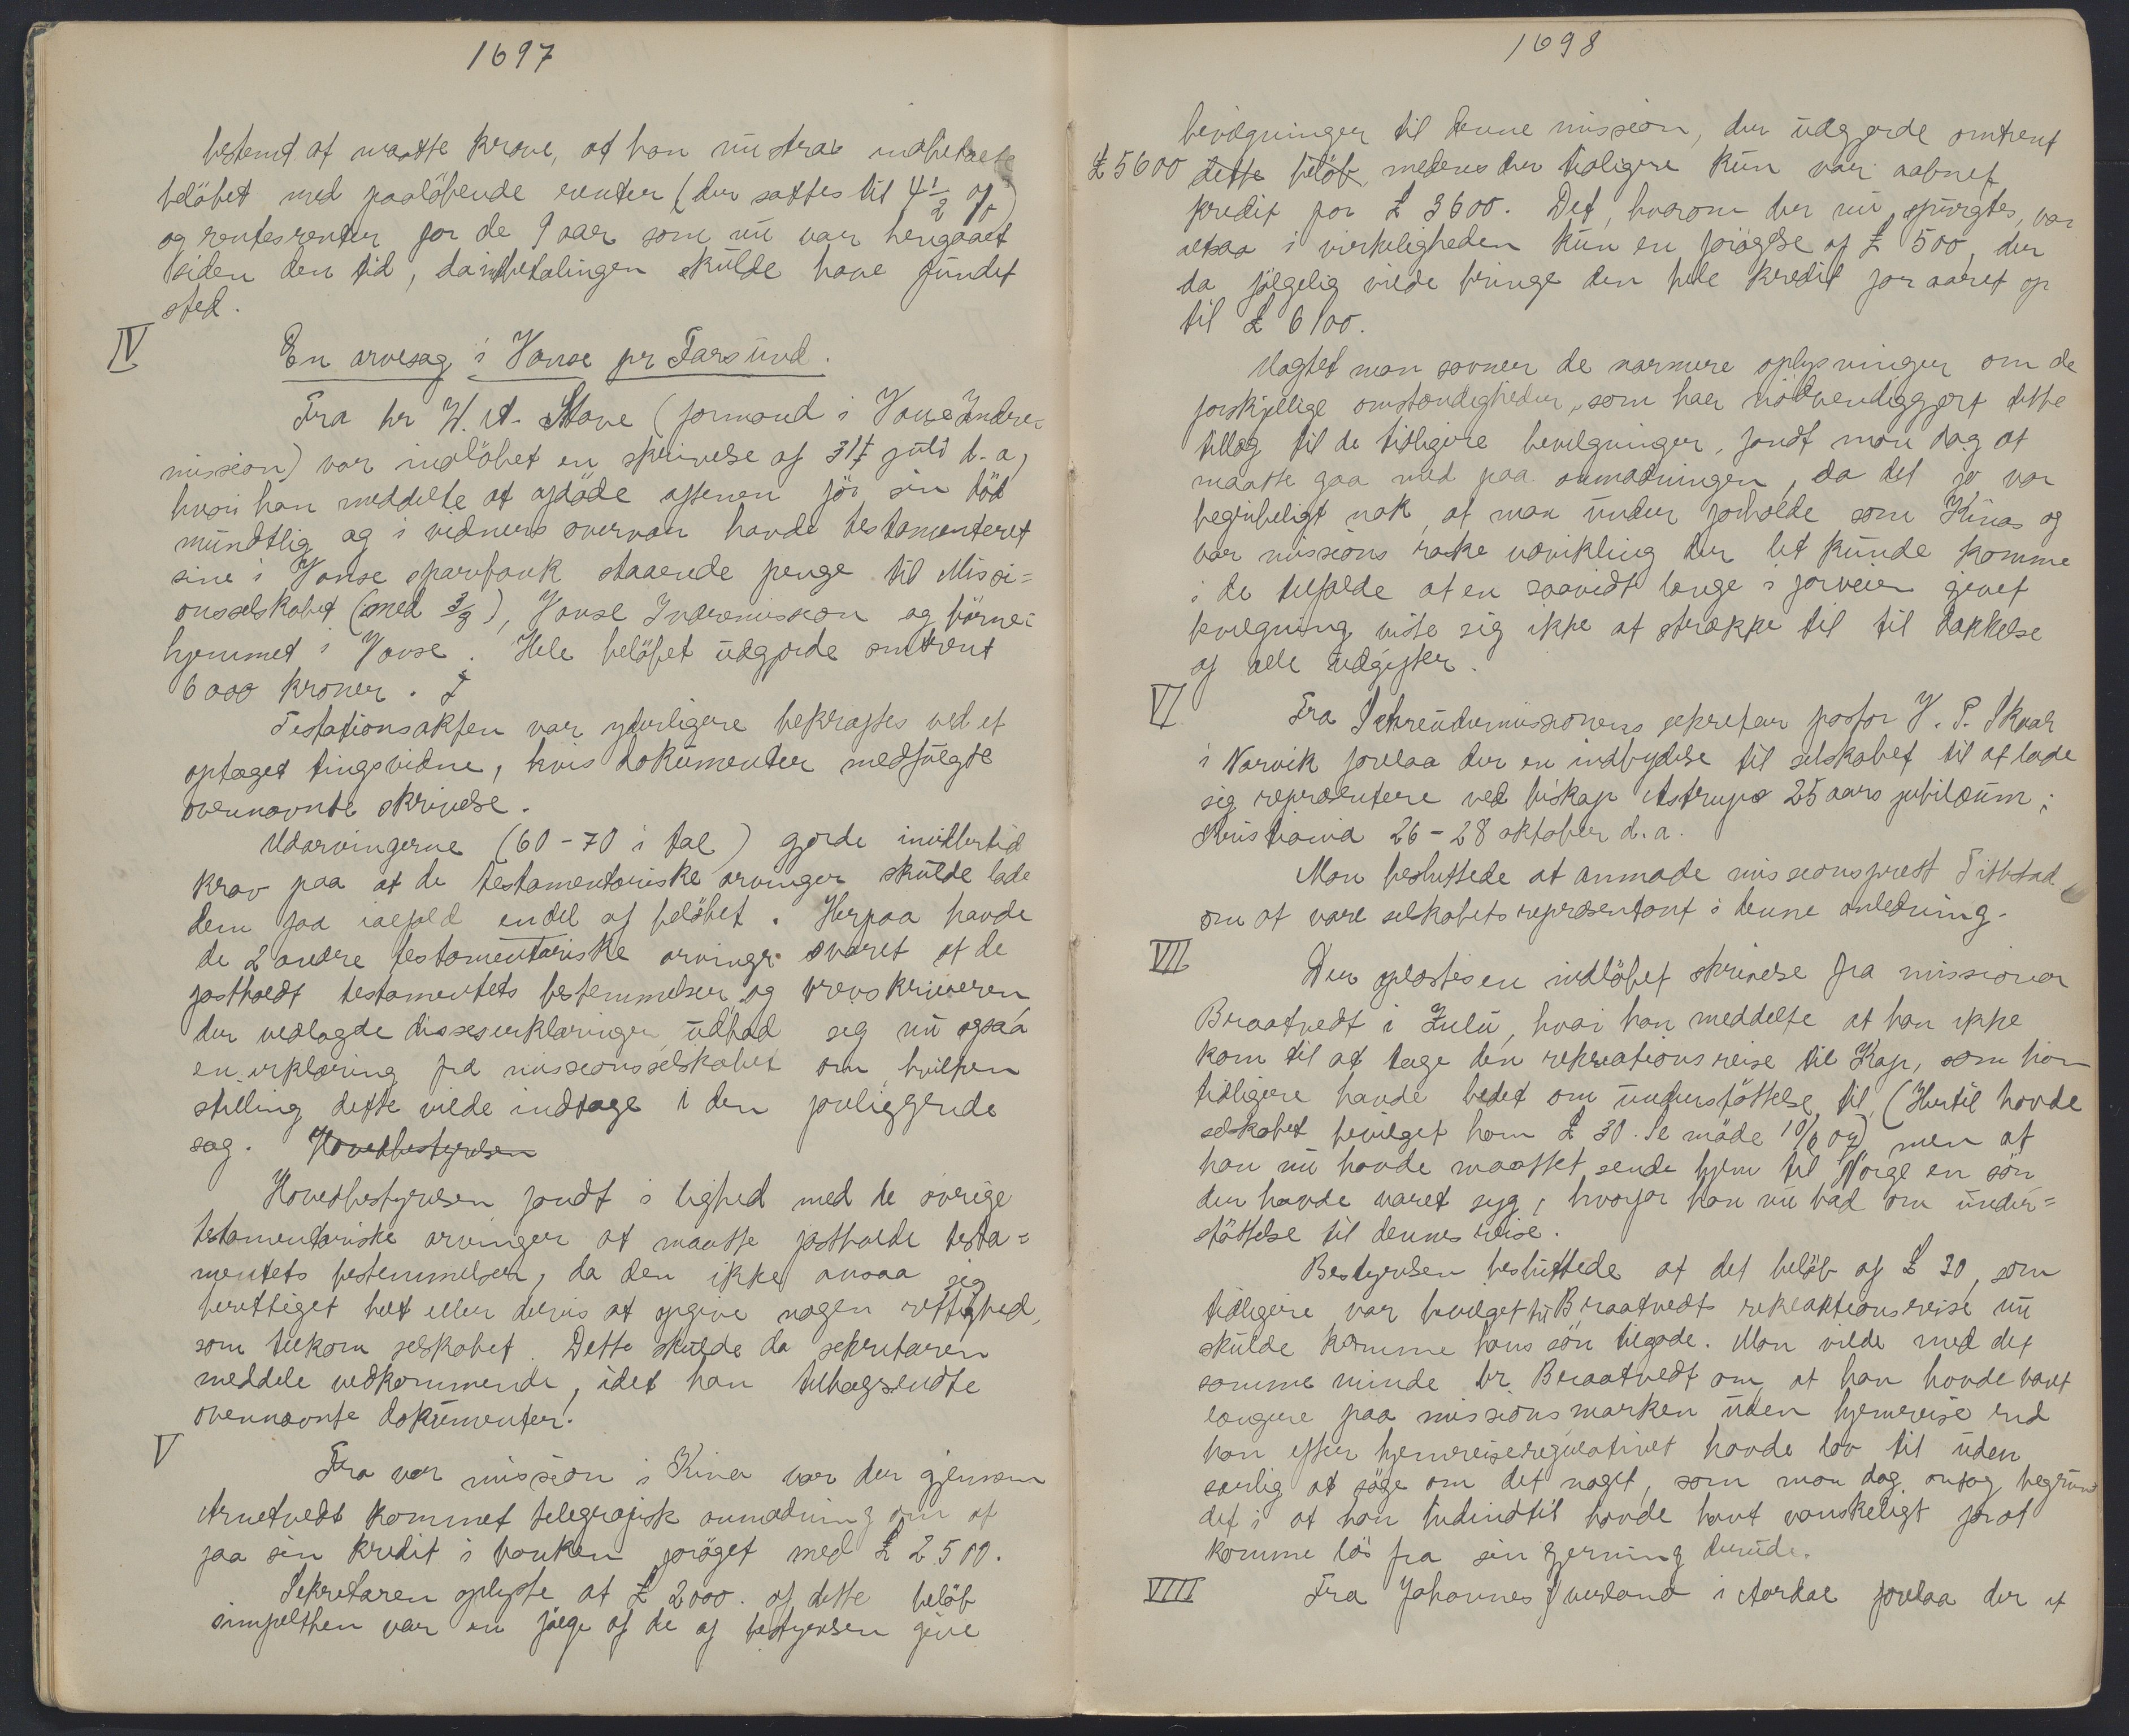 1697
bestemt at maatte kræve, at han nu strax indbetalte
beløbet med paaløbende renter (der sattes til 4 1/2 %)
og rentesrenter for de 9 aar som nu var hengaaet
siden den tid, da indbetalingen skulde have fundet
sted.
IV
En arvesag i Vanse pr Farsund.
Fra hr W. A. Stave (formand i Vanse Indre-
mission) var indløbet en skrivelse af 31t juli d. a,
hvori han meddelte at afdøde aftenen før sin død
mundtlig og i vidners overvær havde testamenteret
sine i Vanse sparebank staaende penge til Missi=
onsselskabet (med 3/9), Vanse Indremission og børne-
hjemmet i Vanse. Hele beløbet udgjorde omtrent
6000 kroner.
Testationsakten var yderligere bekræftes ved et
optaget tingsvidne, hvis dokumenter medfulgte
ovennævnte skrivelse.
Udarvingerne (60-70 i tal) gjorde imidlertid
krav paa at de testamentariske arvinger skulde lade
dem faa ialfald endel af beløbet. Herpaa havde
de 2 andre testamentariske arvinger svaret at de
fastholdt testamentets bestemmelser og brevskriveren
der vedlagde disses erklæringer udbad sig nu ogsaa
en erklæring fra missionsselskabet om hvilken
stilling dette vilde indtage i den foreliggende
sag. Hovedbestyrelsen
Hovedbestyrelsen fandt i lighed med de øvrige
testamentariske arvinger at maatte fastholde testa=
mentets bestemmelser, da den ikke ansaa sig
berettiget helt eller delvis at opgive nogen rettighed,
som tilkom selskabet. Dette skulde da sekretæren
meddele vedkommende, idet han tilbagesendte
ovennævnte dokumenter.
V
Fra vor mission i Kina var der gjennem
Arnetvedt kommet telegrafisk anmodning om at
faa sin kredit i banken forøget med £ 2500.
Sekretæren oplyste at £ 2000. af dette beløb
simpelthen var en følge af de af bestyrelsen give
1698
bevilgninger til denne mission, der udgjorde omtrent
£ 5600 dette beløb, medens der tidligere kun var aabnet
kredit for £ 3600. Det, hvorom der nu spurgtes, var
altsaa i virkeligheden kun en forøgelse af £ 500, der
da følgelig vilde bringe den hele kredit for aaret op
til £ 6100.
Uagtet man savner de nærmere oplysninger om de
forskjellige omstændigheder, som har nødvendiggjort dette
tillæg til de tidligere bevilgninger, fandt man dog at
maatte gaa med paa anmodningen, da det jo var
begribeligt nok, at man under forholde som Kinas og
vor missions raske udvikling der let kunde komme
i de tilfælde at en saavidt længe i forveien givet
bevilgning viste sig ikke at strække til til dækkelse
af alle udgifter.
VI
Fra Schreudermissionens sekretær pastor H. P. Skaar
i Narvik forelaa der en indbydelse til selskabet til at lade
sig repræsentere ved biskop Astrups 25 aars jubilæum i
Kristiania 26-28 oktober d. a.
Man besluttede at anmode missionsprest Titlestad
om at være selskabets repræsentant i denne anledning.
VII
Der oplæstes en indløbet skrivelse fra missionær
Braatvedt i Zulu, hvori han meddelte at han ikke
kom til at tage den rekreationsreise til Kap, som han
tidligere havde bedet om understøttelse til, (Hertil havde
selskabet bevilget ham £ 30. Se møde 10/6 07) men at
han nu havde maattet sende hjem til Norge en søn
der havde været syg, hvorfor han nu bad om under=
støttelse til dennes reise.
Bestyrelsen besluttede at det beløb af £ 30, som
tidligere var bevilget til Braatvedts rekreationsreise nu
skulde komme hans søn tilgode. Man vilde med det
samme minde br. Braatvedt om at han havde vært
længere paa missionsmarken uden hjemreise end
han efter hjemreiseregulativet havde lov til uden
særlig at søge om det noget, som man dog antog begrun
det i at han hidindtil havde havt vanskeligt for at
komme løs fra sin gjerning derude.
VIII
Fra Johannes Sverland i Aardal forelaa der et